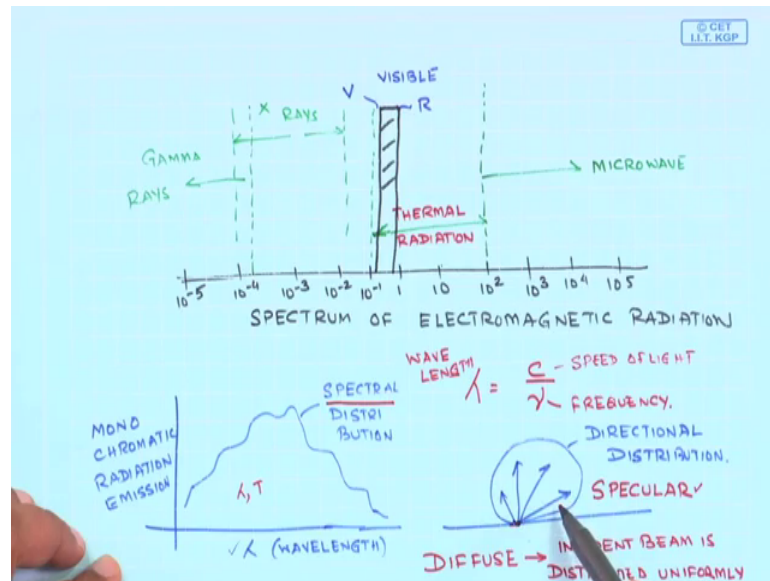 © CET
I.I.T. KGP
VISIBLE
V
R
X RAYS
GAMMA
RAYS
MICROWAVE
THERMAL
RADIATION
10-5 10-4 10-3 10-2 10-1 1 10 10² 10³ 10⁴ 10⁵
SPECTRUM OF ELECTROMAGNETIC RADIATION
WAVE
LENGTH
λ = C/ν
C - SPEED OF LIGHT
ν - FREQUENCY.
MONO
CHROMATIC
RADIATION
EMISSION
SPECTRAL
DISTRI
BUTION
λ, T
✓λ (WAVELENGTH)
DIRECTIONAL
DISTRIBUTION.
SPECULAR✓
DIFFUSE → BEAM IS
UNIFORMLY